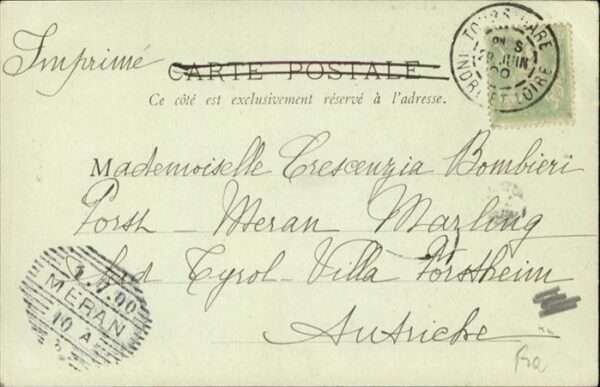 Imprimé
CARTE POSTALE
Ce côté est exclusivement réservé à l'adresse.
TOURS GARE
INDRE-ET-LOIRE
JUIN
00
Mademoiselle Crescenzia Bombieri
Forst - Meran Marling
Süd Tyrol - Villa Forstheim
Autriche
MERAN
10 A
Fra